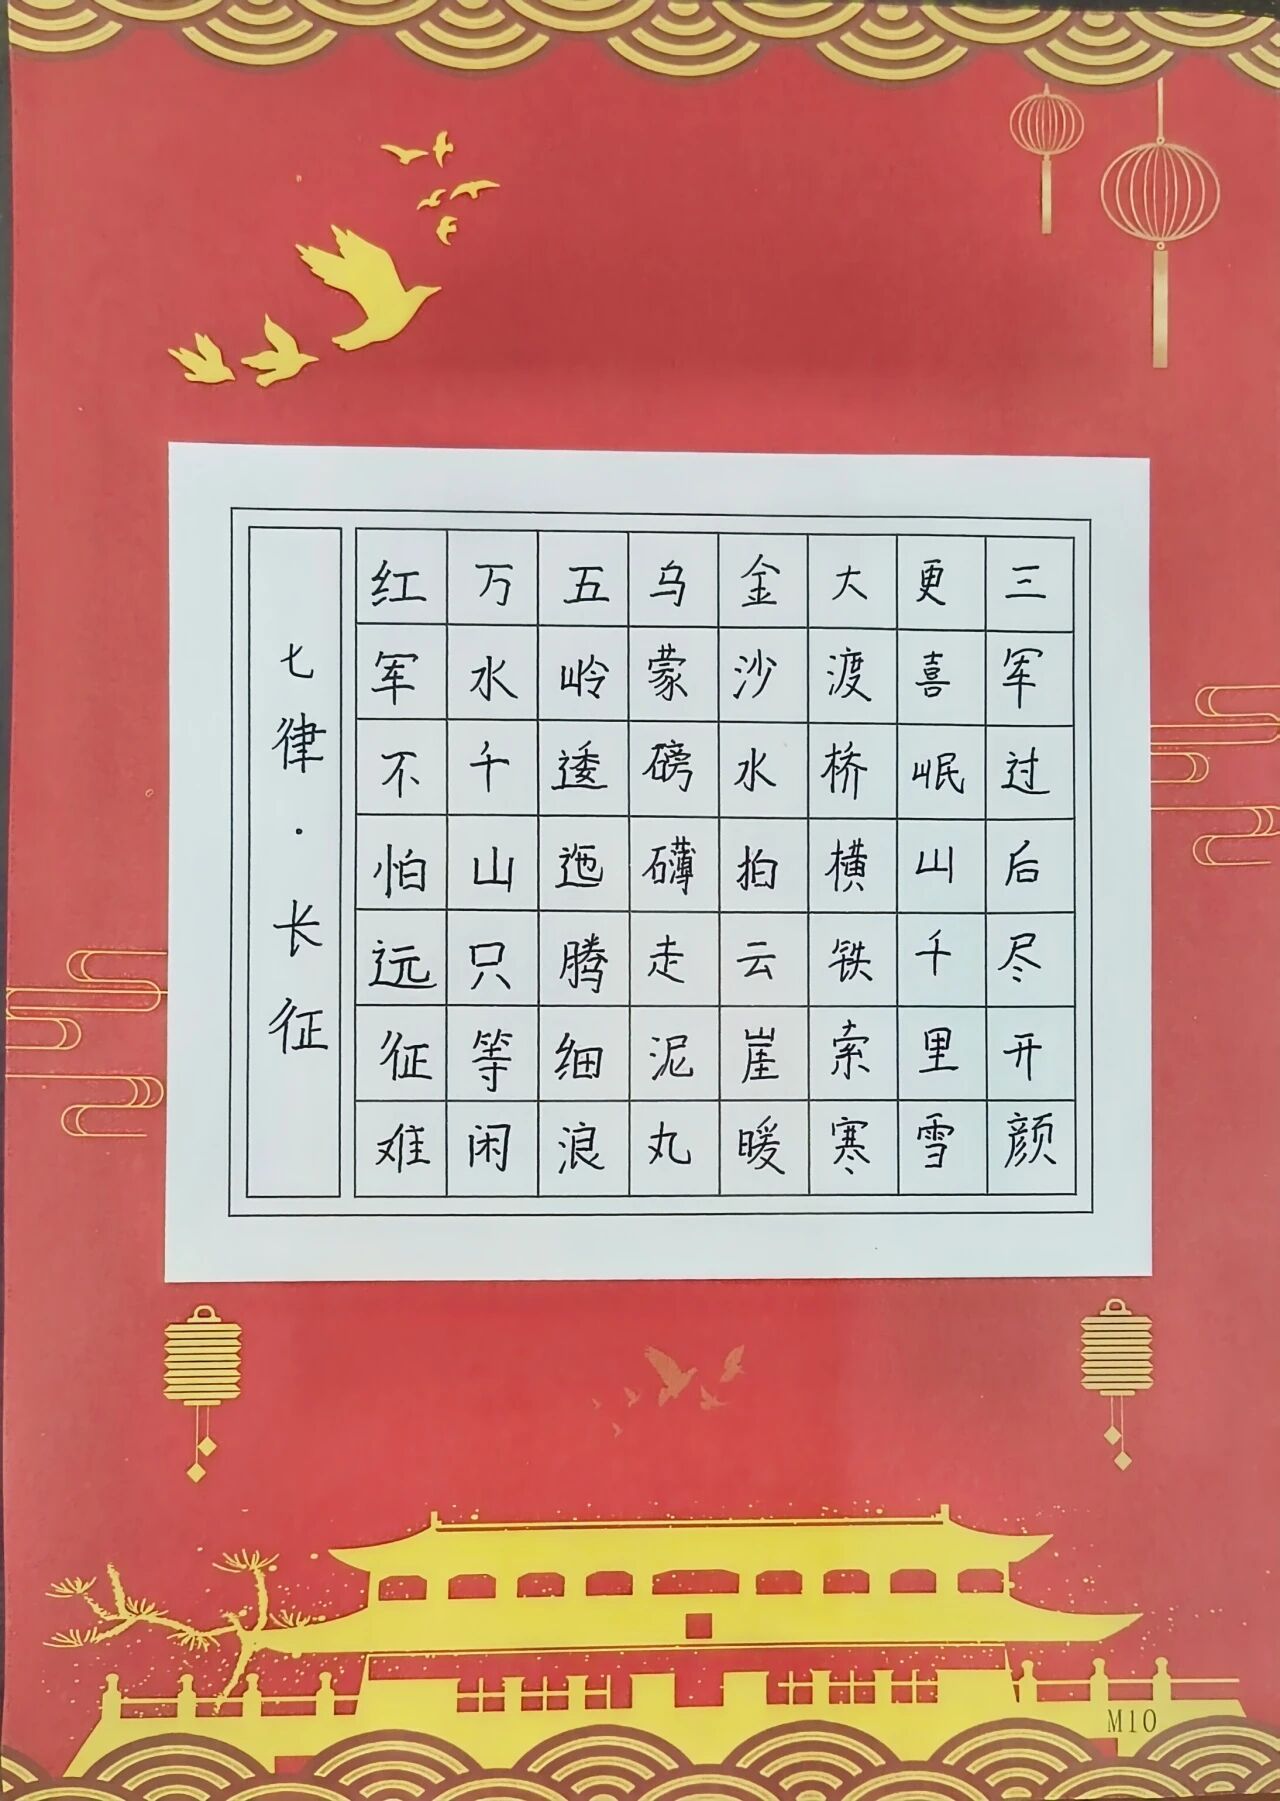 七律·长征
红军不怕远征难
万水千山只等闲
五岭逶迤腾细浪
乌蒙磅礴走泥丸
金沙水拍云崖暖
大渡桥横铁索寒
更喜岷山千里雪
三军过后尽开颜
M10